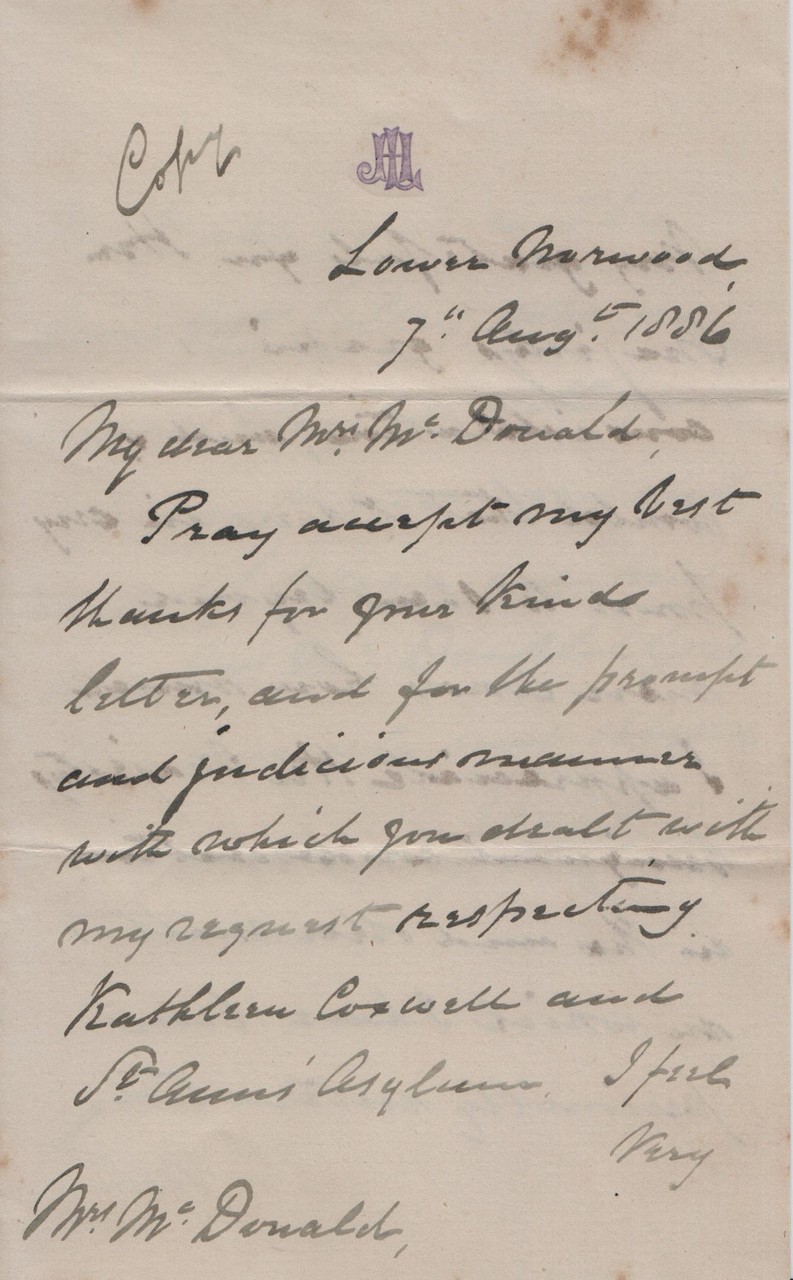 Copy
Lower Norwood,
7" Augt. 1886
My dear Mrs. Mc. Donald,
Pray accept my best
thanks for your kind
letter, and for the prompt
and judicious manner
with which you dealt with
my request respecting
Kathleen Coxwell and
St. Anns' Asylum. I feel
Very
Mrs Mc. Donald,